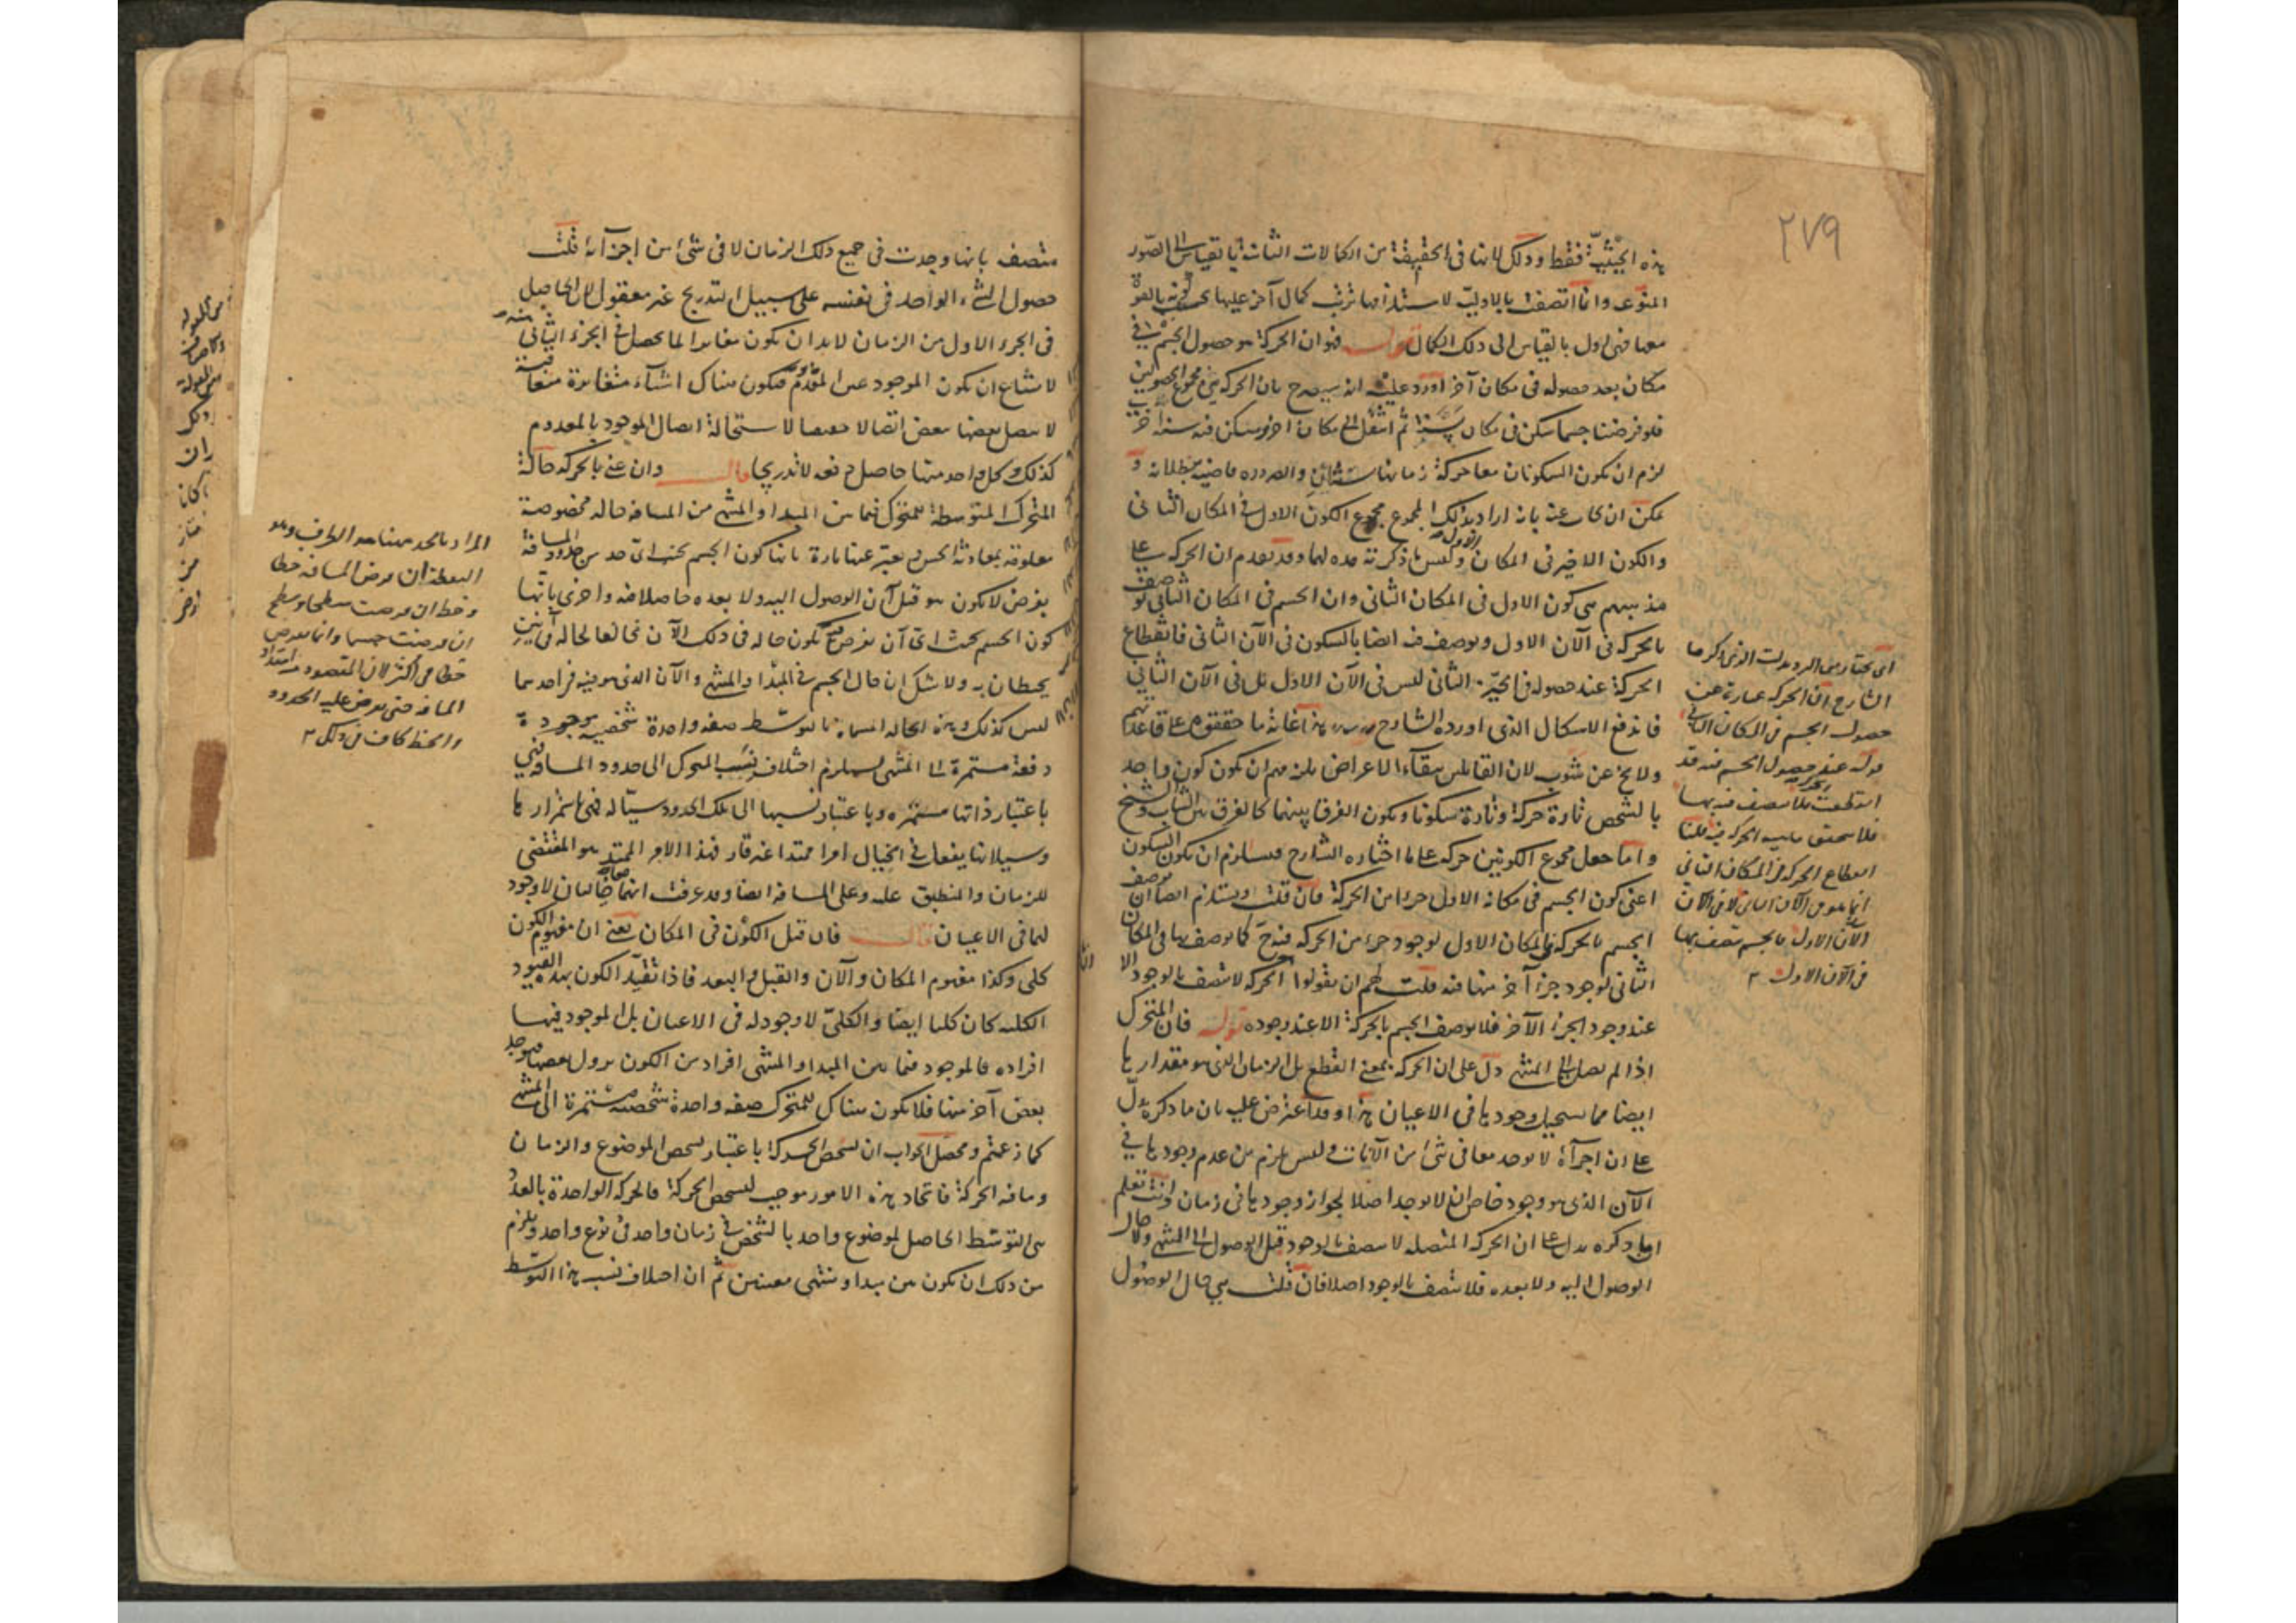 ٢٧٩
هذه الحيثية فقط وذلك لانها فى الحقيقة من الكمالات الثانية بالقياس الى الصور
المنوعة وانما اتصفت بالاولية لاستلزامها ترتب كمال آخر عليها بحسب كونه بالقوة
معها فهى اول بالقياس الى ذلك الكمال قوله فهو ان الحركة هو حصول الجسم فى
مكان بعد حصوله فى مكان آخر اورد عليه انه سيصرح بان الحركة هى مجموع الحصولين
فلو فرضنا جسما سكن فى مكان سنة ثم انتقل الى مكان آخر وسكن فيه سنة اخرى
لزم ان يكون السكونان معا حركة زمانها سنتان والضرورة قاضية ببطلانه و
يمكن ان يجاب عنه بانه اراد بذلك المجموع مجموع الكون الاول فى المكان الثانى
والكون الاخير فى المكان الاول وليس ما ذكرته هذه لهما وقد تقدم ان الحركة على
مذهبهم هى كون الاول فى المكان الثانى وان الجسم فى المكان الثانى يوصف
بالحركة فى الآن الاول ويوصف فيه ايضا بالسكون فى الآن الثانى فانقطاع
الحركة عند حصوله فى الحيز الثانى ليس فى الآن الاول بل فى الآن الثانى
فاندفع الاشكال الذى اورده الشارح هذا غاية ما حققوه على قاعدتهم
ولا يخ عن شوب لان القائلين ببقاء الاعراض يلزمهم ان يكون كون واحد
بالشخص تارة حركة وتارة سكونا ويكون الفرق بينهما كالفرق بين الشاب والشيخ
واما جعل مجموع الكونين حركة على ما اختاره الشارح فيستلزم ان يكون السكون
اعنى كون الجسم فى مكانه الاول جزءا من الحركة فان قلت ويستلزم ايضا ان يوصف
الجسم بالحركة فى المكان الاول لوجود جزء من الحركة فيه ح كما يوصف بها فى المكان
الثانى لوجود جزء آخر منها فيه قلت لهم ان يقولوا الحركة لا تتصف بالوجود الا
عند وجود الجزء الآخر فلا يوصف الجسم بالحركة الا عند وجوده قوله فان المتحرك
اذا لم يصل الى المنتهى دل على ان الحركة بمعنى القطع بل الزمان الذى هو مقدارها
ايضا مما يستحيل وجودها فى الاعيان هذا وقد اعترض عليه بان ما ذكره يدل
على ان اجزآءه لا توجد معا فى شئ من الآنات وليس يلزم من عدم وجودها فى
الآن الذى هو وجود خاص ان لا توجد اصلا لجواز وجودها فى زمان وانت تعلم
ان ما ذكره يدل على ان الحركة المتصلة لا تتصف بالوجود قبل الوصول الى المنتهى ولا حال
الوصول اليه ولا بعده فلا تتصف بالوجود اصلا فان قلت هى حال الوصول
اى نختار من الترديدات الذى ذكرها
الشارح ان الحركة عبارة عن
حصول الجسم فى المكان الثانى
قوله عند حصول الجسم فيه قد
انقطعت الحركة فلا يتصف فيه بها
فلا يتحقق ماهية الحركة فيه قلنا
انقطاع الحركة فى المكان الثانى
انما هو فى الآن الثانى لا فى الآن
الآن الاول فالجسم يتصف بها
فى الآن الاول
متصف بانها وجدت فى جميع ذلك الزمان لا فى شئ من اجزآئه قلت
حصول الشئ الواحد فى نفسه على سبيل التدريج غير معقول لان الحاصل
فى الجزء الاول من الزمان لا بد ان يكون مغايرا لما يحصل فى الجزء الثانى منه
لامتناع ان يكون الموجود عين المعدوم فيكون هناك اشياء متغايرة متعاقبة
لا يتصل بعضها ببعض اتصالا حقيقيا لاستحالة اتصال الموجود بالمعدوم
كذلك وكل واحد منها حاصل دفعة لا تدريجا قال وان عنى بالحركة حالة
المتحرك المتوسطة للمتحرك فيما بين المبدا والمنتهى من المسافة حالة مخصوصة
معلومة بمعاونة الحس يعبر عنها تارة بانها كون الجسم بحيث اى حد من حدود المسافة
يفرض لا يكون هو قبل آن الوصول اليه ولا بعده حاصلا فيه واخرى بانها
كون الجسم بحيث اى آن يفرض يكون حاله فى ذلك الآن مخالفا لحاله فى آنين
يحيطان به ولا شك ان حال الجسم فى المبدا والمنتهى والآن الذى هو فيه فى احدهما
ليس كذلك وهذه الحالة المسماة بالتوسط صفة واحدة شخصية موجودة
دفعة مستمرة الى المنتهى يستلزم اختلاف نسب المتحرك الى حدود المسافة فهى
باعتبار ذاتها مستمرة وباعتبار نسبها الى تلك الحدود سيالة فهى باستمرارها
وسيلانها يفعل فى الخيال امرا ممتدا غير قار فهذا الامر الممتد هو المقتضى
للزمان والمنطبق عليه وعلى المسافة ايضا وقد عرفت انهما معا خياليان لا وجود
لهما فى الاعيان قال فان قيل الكون فى المكان يعنى ان مفهوم الكون
كلى وكذا مفهوم المكان والآن والقبل والبعد فاذا تقيد الكون بهذه القيود
الكلية كان كليا ايضا والكلى لا وجود له فى الاعيان بل الموجود فيها
افراده فالموجود فيما بين المبدا والمنتهى افراد من الكون يزول بعضها ويوجد
بعض آخر منها فلا يكون هناك للمتحرك صفة واحدة شخصية مستمرة الى المنتهى
كما زعمتم ومحصل الجواب ان تشخص الحركة باعتبار تشخص الموضوع والزمان
وما فيه الحركة فاتحاد هذه الامور موجب لتشخص الحركة فالحركة الواحدة بالعدد
هى التوسط الحاصل لموضوع واحد بالشخص فى زمان واحد فى نوع واحد ويلزم
من ذلك ان يكون بين مبدا ومنتهى معينين ثم ان اختلاف نسب هذا التوسط
المراد بالحد ههنا هو الطرف وهو
النقطة ان فرض المسافة خطا
وخط ان فرضت سطحا وسطح
ان فرضت جسما وانما يفرض
خطا فى الاكثر لان المقصود هو امتداد
المسافة حتى يفرض عليه الحدود
والخط كاف فى ذلك